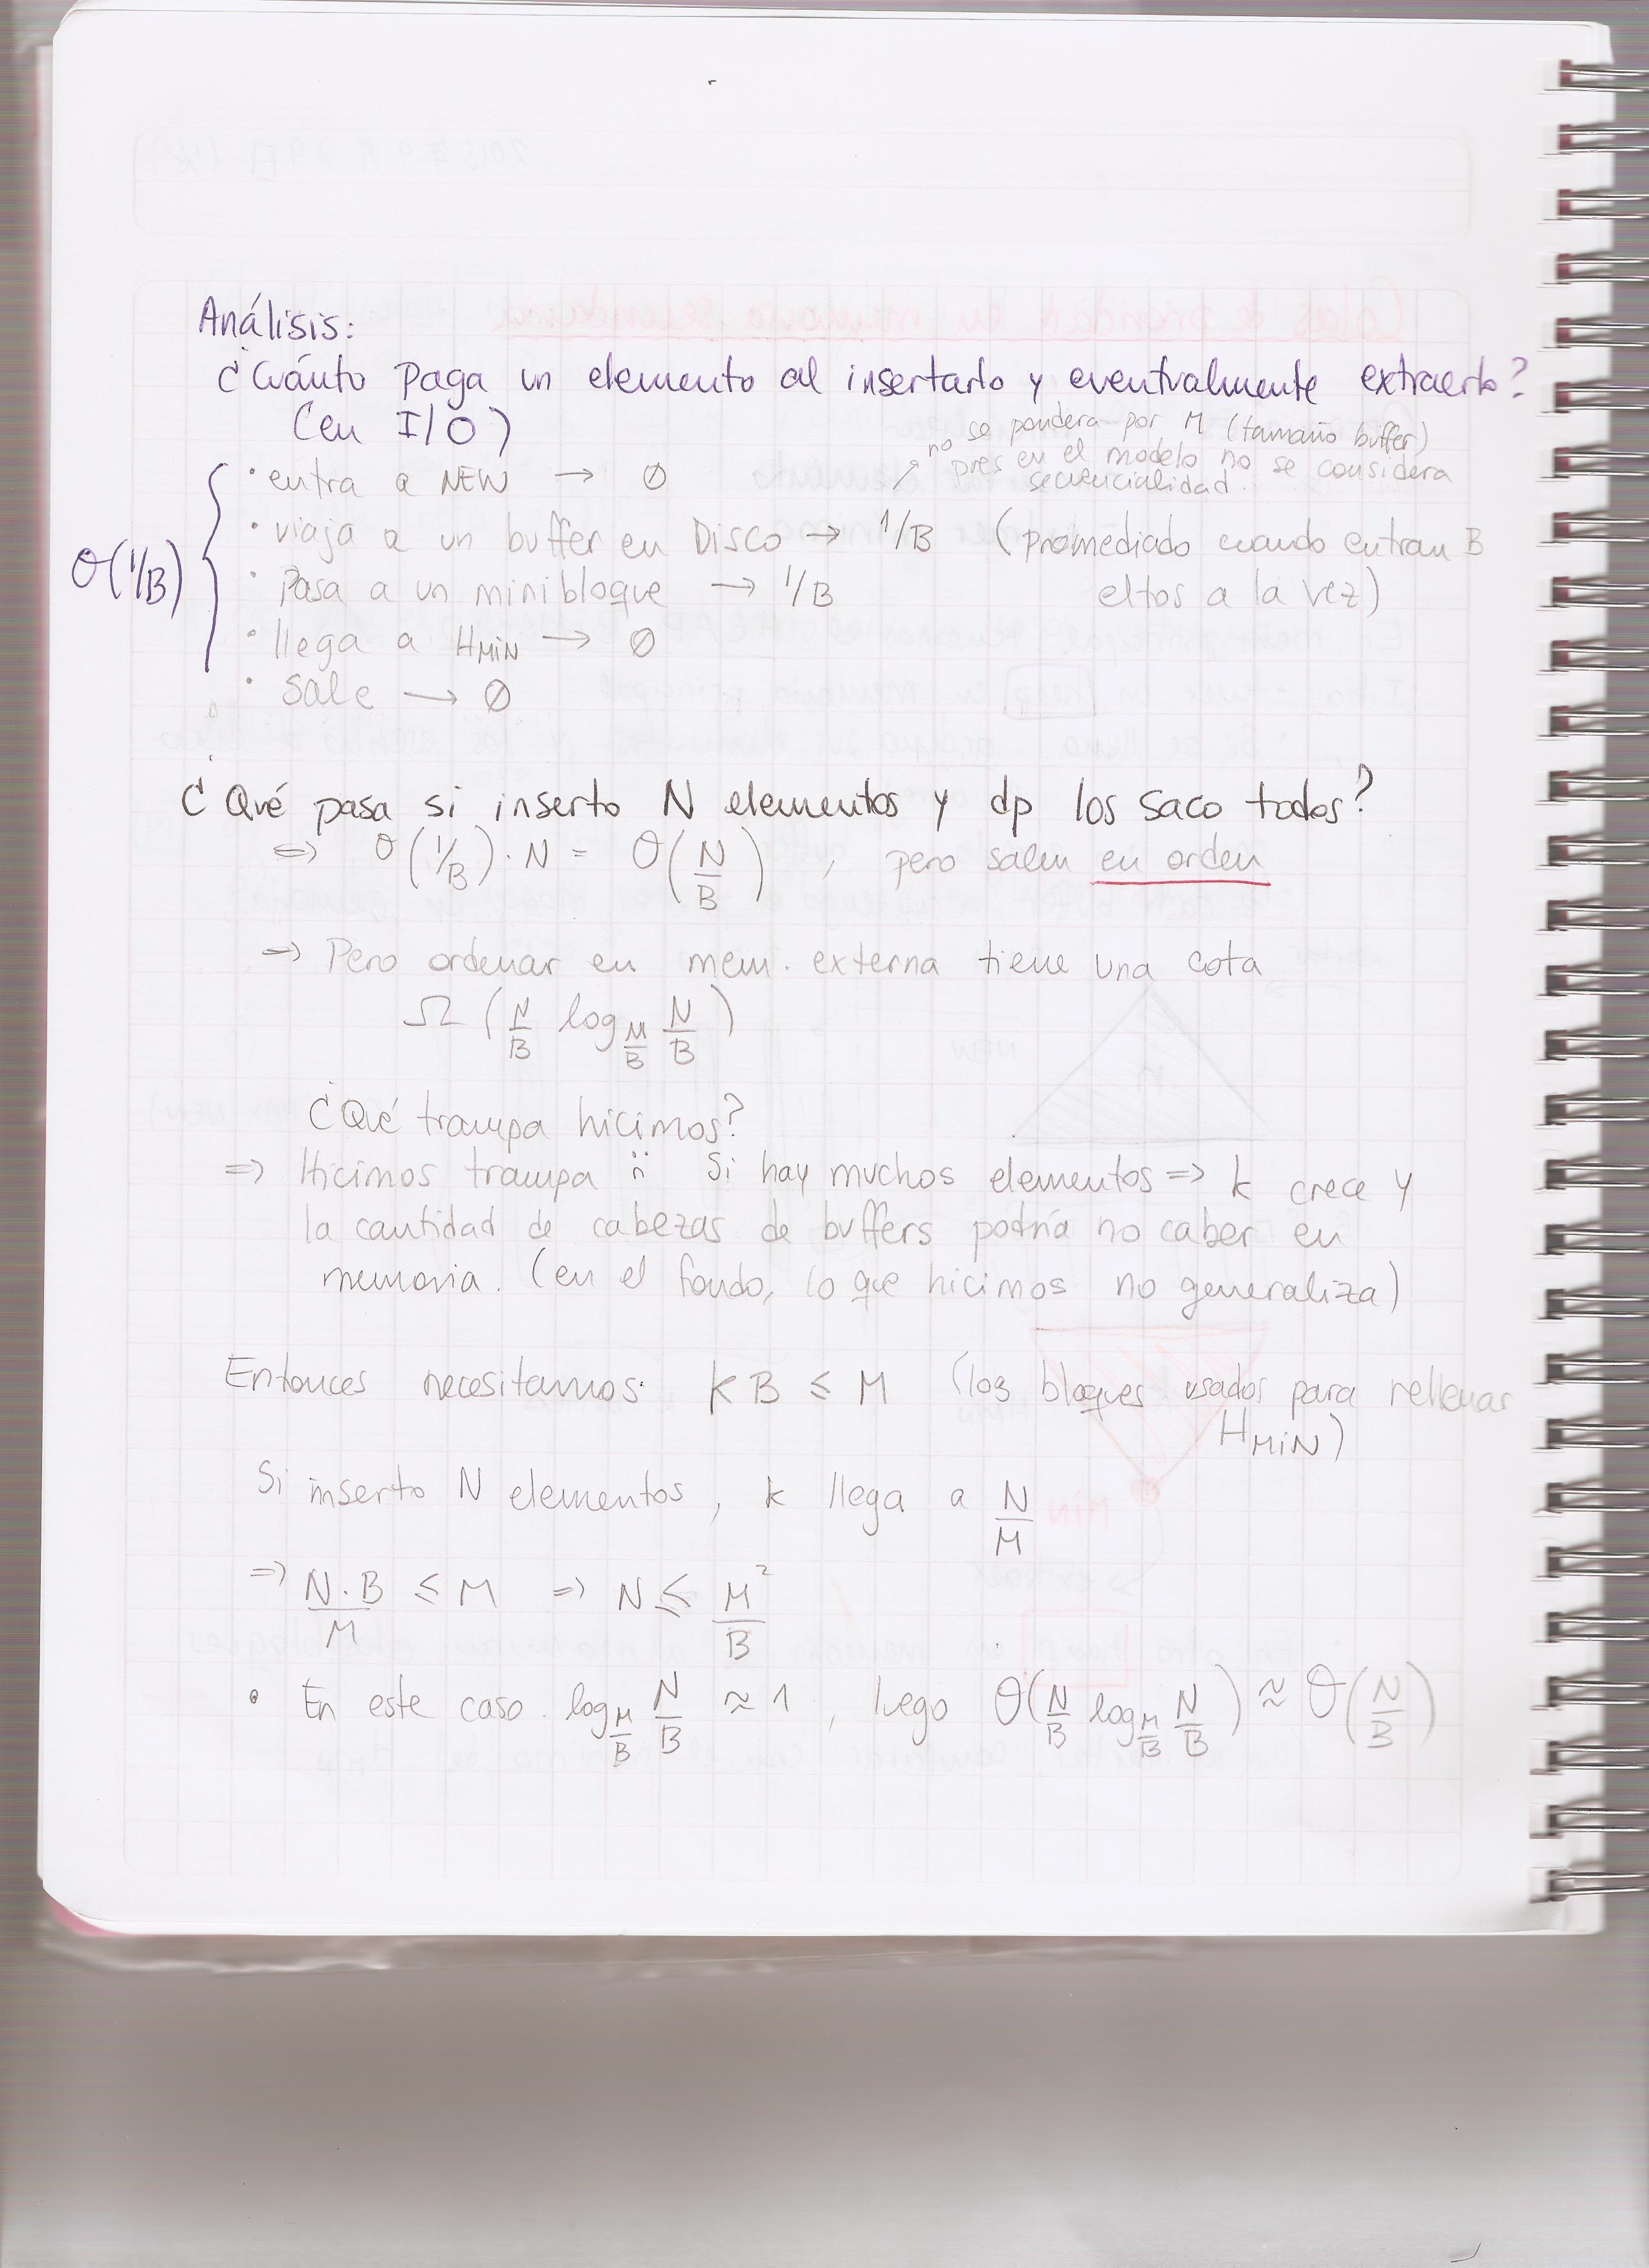 Análisis:
¿Cuánto paga un elemento al insertarlo y eventualmente extraerlo?
(en I/O)
no se pondera por M (tamaño buffer)
pues en el modelo no se considera
secuencialidad.
O(1/B)
• entra a NEW → ∅
• viaja a un buffer en Disco → 1/B (promediado cuando entran B
eltos a la vez)
• Pasa a un minibloque → 1/B
• llega a HMIN → ∅
• sale → ∅
¿Qué pasa si inserto N elementos y dp los saco todos?
⇒ O(1/B)·N = O(N/B), pero salen en orden
⇒ Pero ordenar en mem. externa tiene una cota
Ω(N/B log_{M/B} N/B)
¿Qué trampa hicimos?
⇒ Hicimos trampa ü Si hay muchos elementos ⇒ k crece y
la cantidad de cabezas de buffers podría no caber en
memoria. (en el fondo, lo que hicimos no generaliza)
Entonces necesitamos: kB ≤ M (los bloques usados para rellenar
HMIN)
Si inserto N elementos, k llega a N/M
⇒ N·B/M ≤ M ⇒ N ≤ M²/B
• En este caso log_{M/B} N/B ≈ 1, luego O(N/B log_{M/B} N/B) ≈ O(N/B)